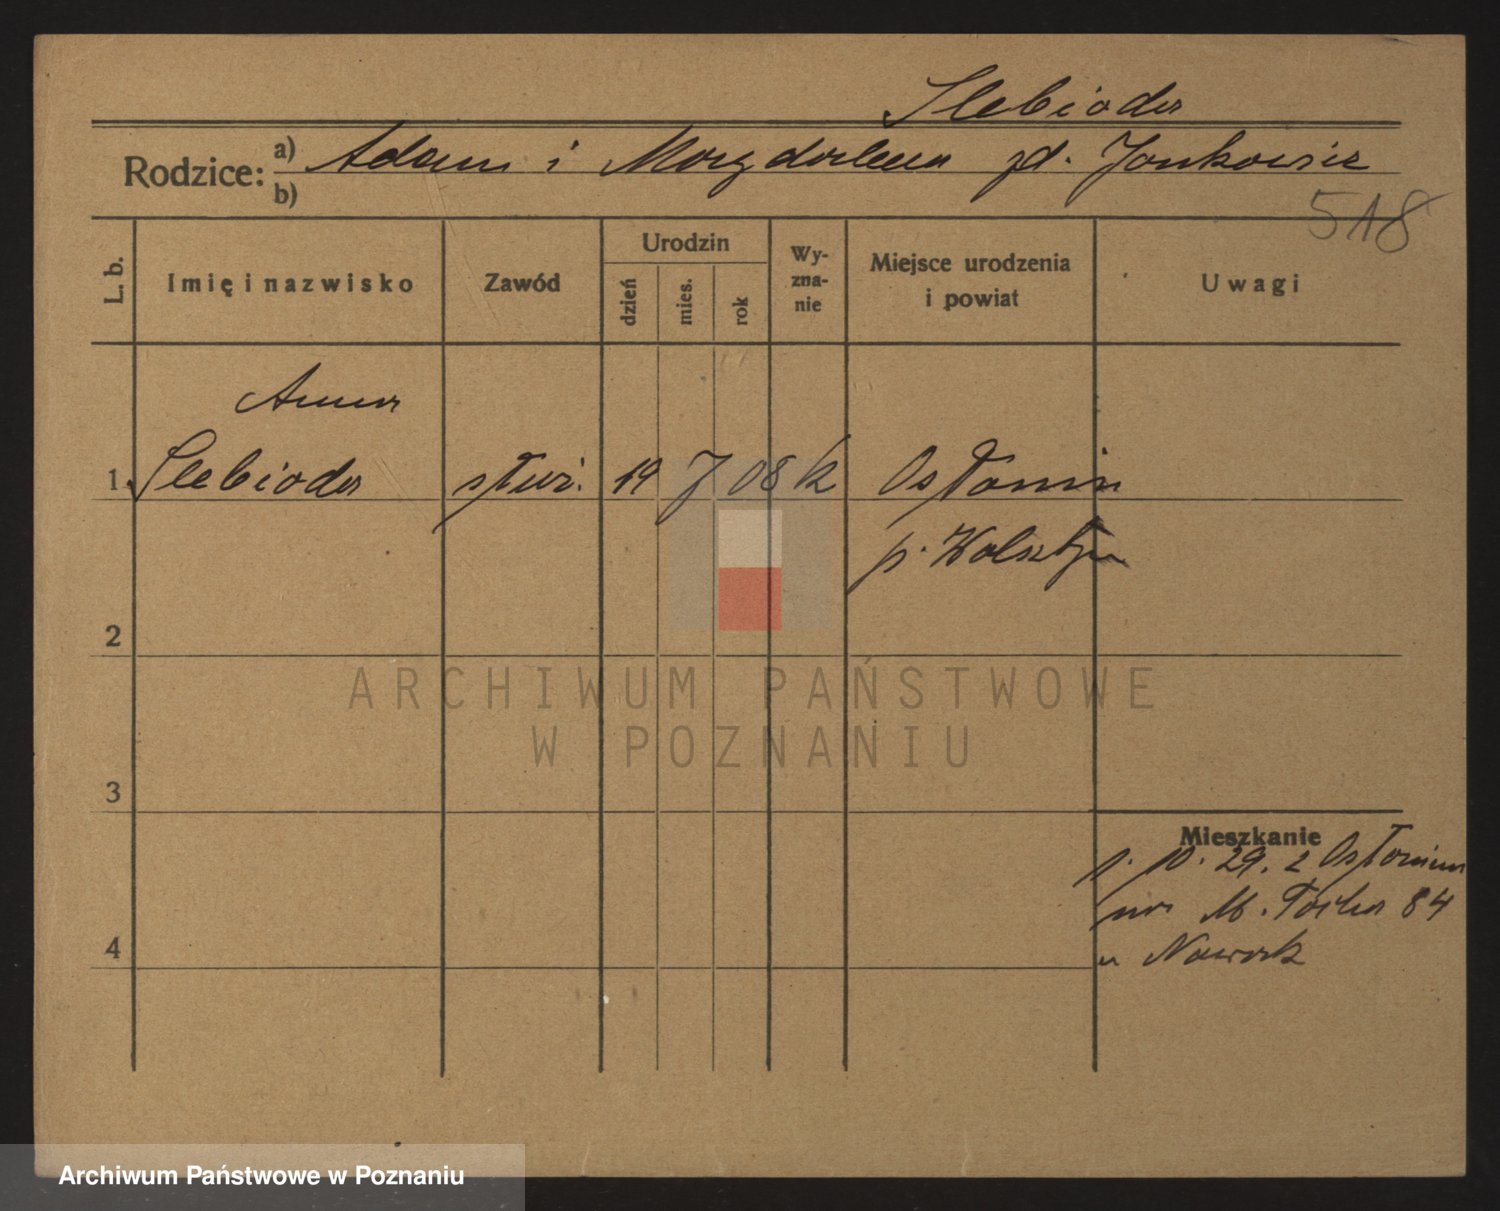 Slebioda
Rodzice: a) Adam i Magdalena zd. Jankowiak
b)
518
L. b. Imię i nazwisko Zawód Urodzin dzień mies. rok Wyznanie Miejsce urodzenia i powiat Uwagi
Anna
1 Slebioda służ. 19 7 08 k Osłonin
p. Wolsztyn
2
3
Mieszkanie
p. 10. 29. z Osłonina
na M. Focha 84
u Nowak
4
ARCHIWUM PAŃSTWOWE
W POZNANIU
Archiwum Państwowe w Poznaniu